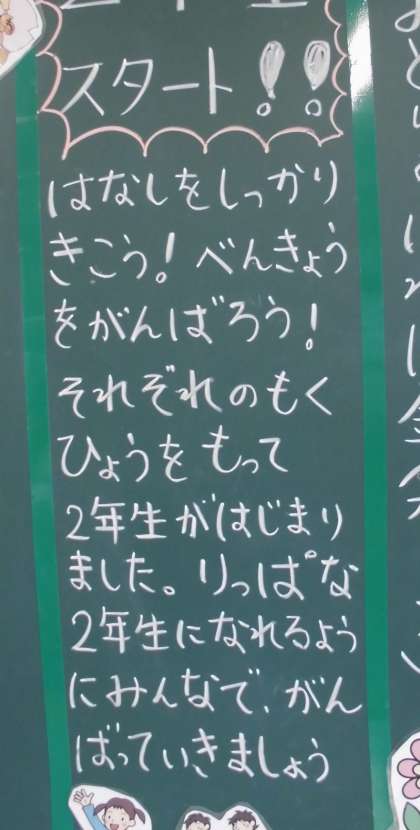 スタート!!
はなしをしっかり
きこう!べんきょう
をがんばろう!
それぞれのもく
ひょうをもって
2年生がはじまり
ました。りっぱな
2年生になれるよう
にみんなで、がん
ばっていきましょう